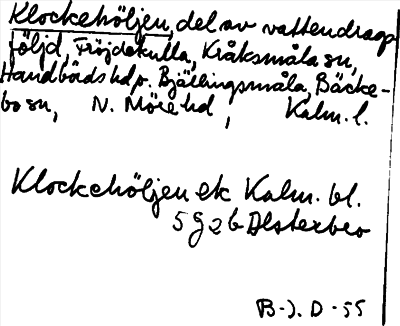 Klockehöljen, del av vattendrags-
följd, Fröjdekulla, Kråksmåla sn,
Handbörds hd o. Bjällingsmåla, Bäcke-
bo sn, N. Möre hd, Kalm. l.
Klockehöljen ek Kalm. bl.
5 g 2 b Alsterbro
B-J. D -55